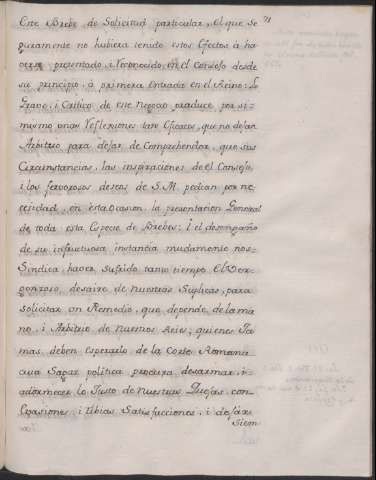 71
Este Brebe de Solicitud particular, el que se
guramente no hubiera tenido estos Efectos à ha
verse presentado, i reconocido en el Consejo desde
su principio, ò primera entrada en el Reino: Lo
Grave, i Critico de este negocio produce por si-
mismo unas reflexiones tan eficaces, que no dejan
Arbitrio para dejar de Comprehender, que sus
Circunstancias, las inspiraciones de el Consejo,
i los fervorosos deseos de S. M. pedian por ne
cesidad, en esta ocasion, la presentacion General
de toda esta Especie de Brebes; I el desempeño
de su infructuosa instancia mudamente nos-
Sindica, haver sufrido tanto tiempo, El Ver-
gonzoso, desaire de nuestras Suplicas, para
solicitar un Remedio, que depende, de la ma
no, i Arbitrio de nuestros Reies, quienes Ja
mas, deben esperarlo, de la Corte Romana
cuia Sagaz politica procura desarmar, i-
adormecer lo Justo de nuestras Quejas, con-
i tibias Satisfacciones, i dejar
Siem